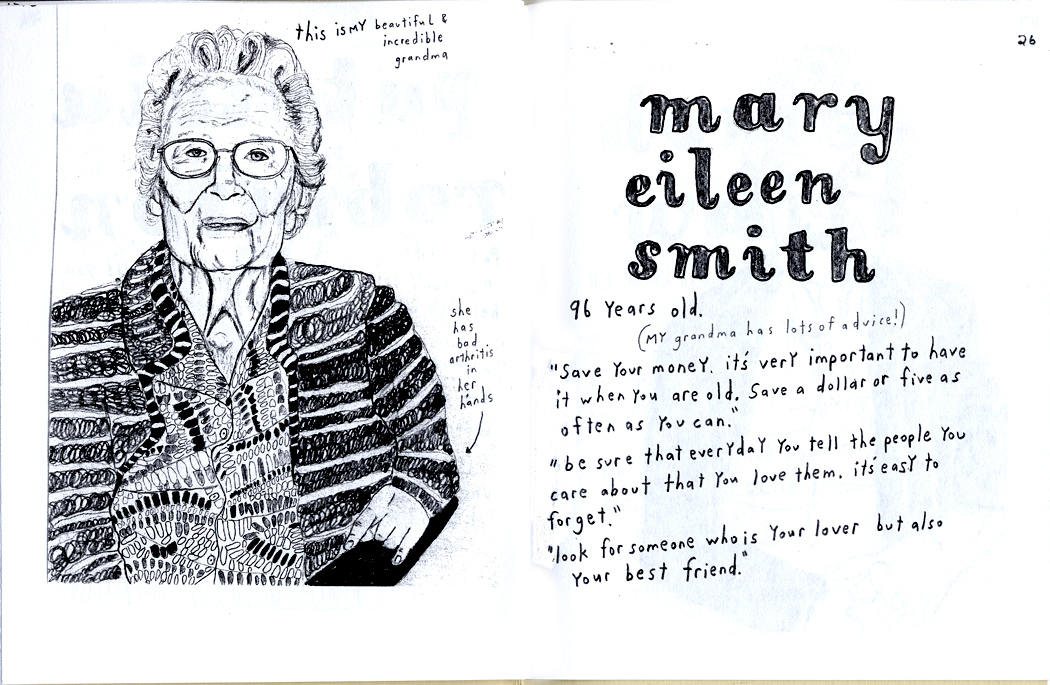 this is MY beautiful &
incredible
grandma
she
has
bad
arthritis
in
her
hands
26
mary
eileen
smith
96 Years old.
(MY grandma has lots of advice!)
"Save Your money. it's very important to have
it when You are old. Save a dollar or five as
often as You can."
"be sure that everyday You tell the people You
care about that You love them. it's easy to
forget."
"look for someone who is Your lover but also
Your best friend."